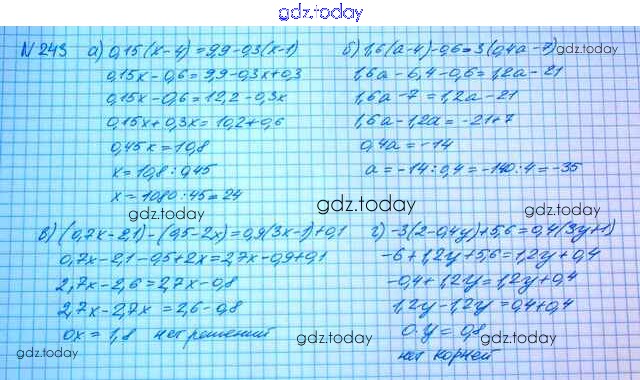 gdz.today
№ 243 а) 0,15(x-4)=9,9-0,3(x-1)
0,15x-0,6=9,9-0,3x+0,3
0,15x-0,6=12,2-0,3x
0,15x+0,3x=10,2+0,6
0,45x=10,8
x=10,8:0,45
x=1080:45=24
б) 1,6(a-4)-0,6=3(0,4a-7)
1,6a-6,4-0,6=1,2a-21
1,6a-7=1,2a-21
1,6a-1,2a=-21+7
0,4a=-14
a=-14:0,4=-140:4=-35
gdz.today
gdz.today
в) (0,7x-2,1)-(0,5-2x)=0,9(3x-1)+0,1
0,7x-2,1-0,5+2x=2,7x-0,9+0,1
2,7x-2,6=2,7x-0,8
2,7x-2,7x=2,6-0,8
0x=1,8 нет решений
г) -3(2-0,4y)+5,6=0,4(3y+1)
-6+1,2y+5,6=1,2y+0,4
-0,4+1,2y=1,2y+0,4
1,2y-1,2y=0,4+0,4
0·y=0,8
нет корней
gdz.today
gdz.today
gdz.today
gdz.today